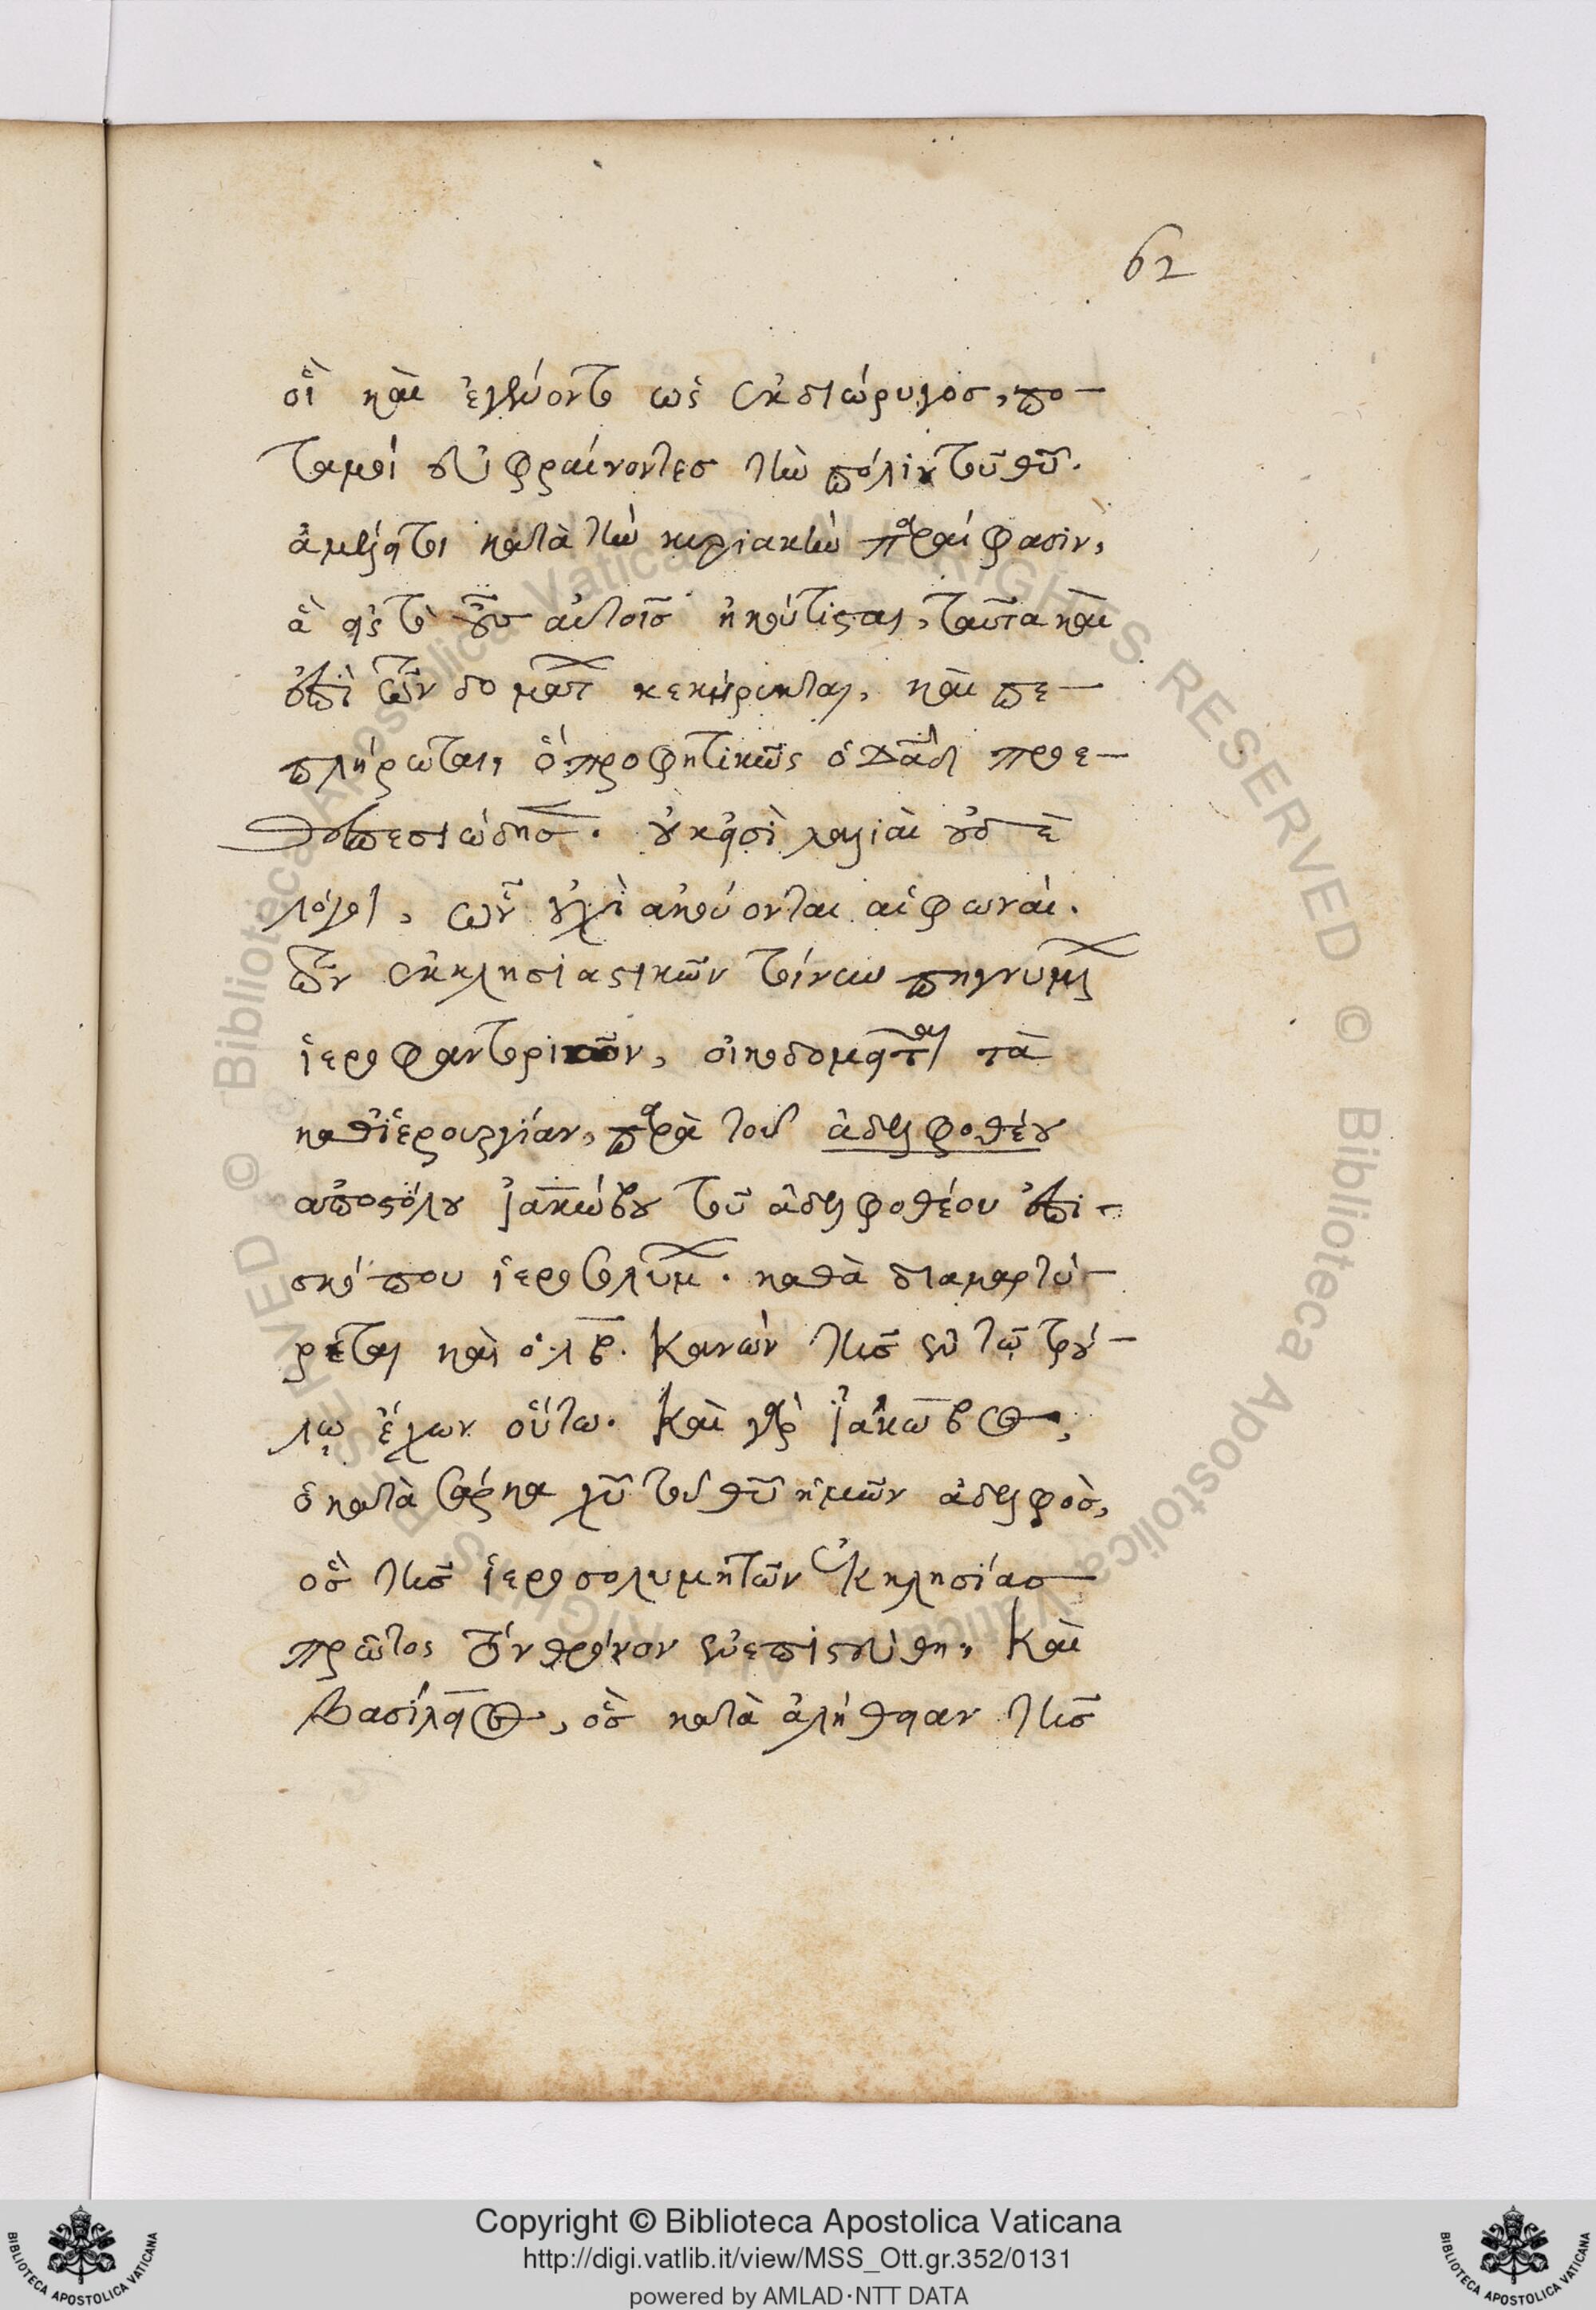 62
οἳ καὶ ἐκχέοντες ὡς ἐκ διώρυγος, πο-
ταμοὶ εὐφραίνοντες τὴν πόλιν τοῦ θῦ.
ἀμέλητι κατὰ τὴν κυριακὴν παράφασιν,
ἃ εἰς τὸ οὖς αὐτοῖς ἠκούτισται, ταῦτα καὶ
ἐπὶ τῶν δομάτ κεκήρυκται, καὶ πε-
πλήρωται, ὁ προφητικῶς ὁ Δαδ προε-
θέσπεσιώδησ. οὐκ εἰσὶ λαλιαὶ οὐδὲ
λόγοι, ὧν οὐχὶ ἀκούονται αἱ φωναί.
τῶν ἐκκλησιαστικῶν τοίνυν πηγνυμέ
ἱεροφαντοριῶν, οἰκοδομεῖται τὰ
καθ' ἱερουργίαν, παρὰ τοῦ ἀδελφοθέου
ἀποστόλου Ἰακώβου τοῦ ἀδελφοθέου ἐπι-
σκόπου ἱεροσολύμ. καθὰ διαμαρτύ-
ρεται καὶ ὁ λβ. Κανὼν τῆς ἐν τῷ τρού-
λῳ ἔχων οὕτω. Καὶ γὰρ Ἰάκωβος,
ὁ κατὰ σάρκα χῦ τοῦ θῦ ἡμῶν ἀδελφὸς,
ὃς τῆς ἱεροσολυμητῶν Ἐκκλησίας
πρῶτος τὸν θρόνον ἐνεπιστεύθη, Καὶ
Βασίλειος, ὃς κατὰ ἀλήθειαν τῆς
Copyright © Biblioteca Apostolica Vaticana
http://digi.vatlib.it/view/MSS_Ott.gr.352/0131
powered by AMLAD·NTT DATA